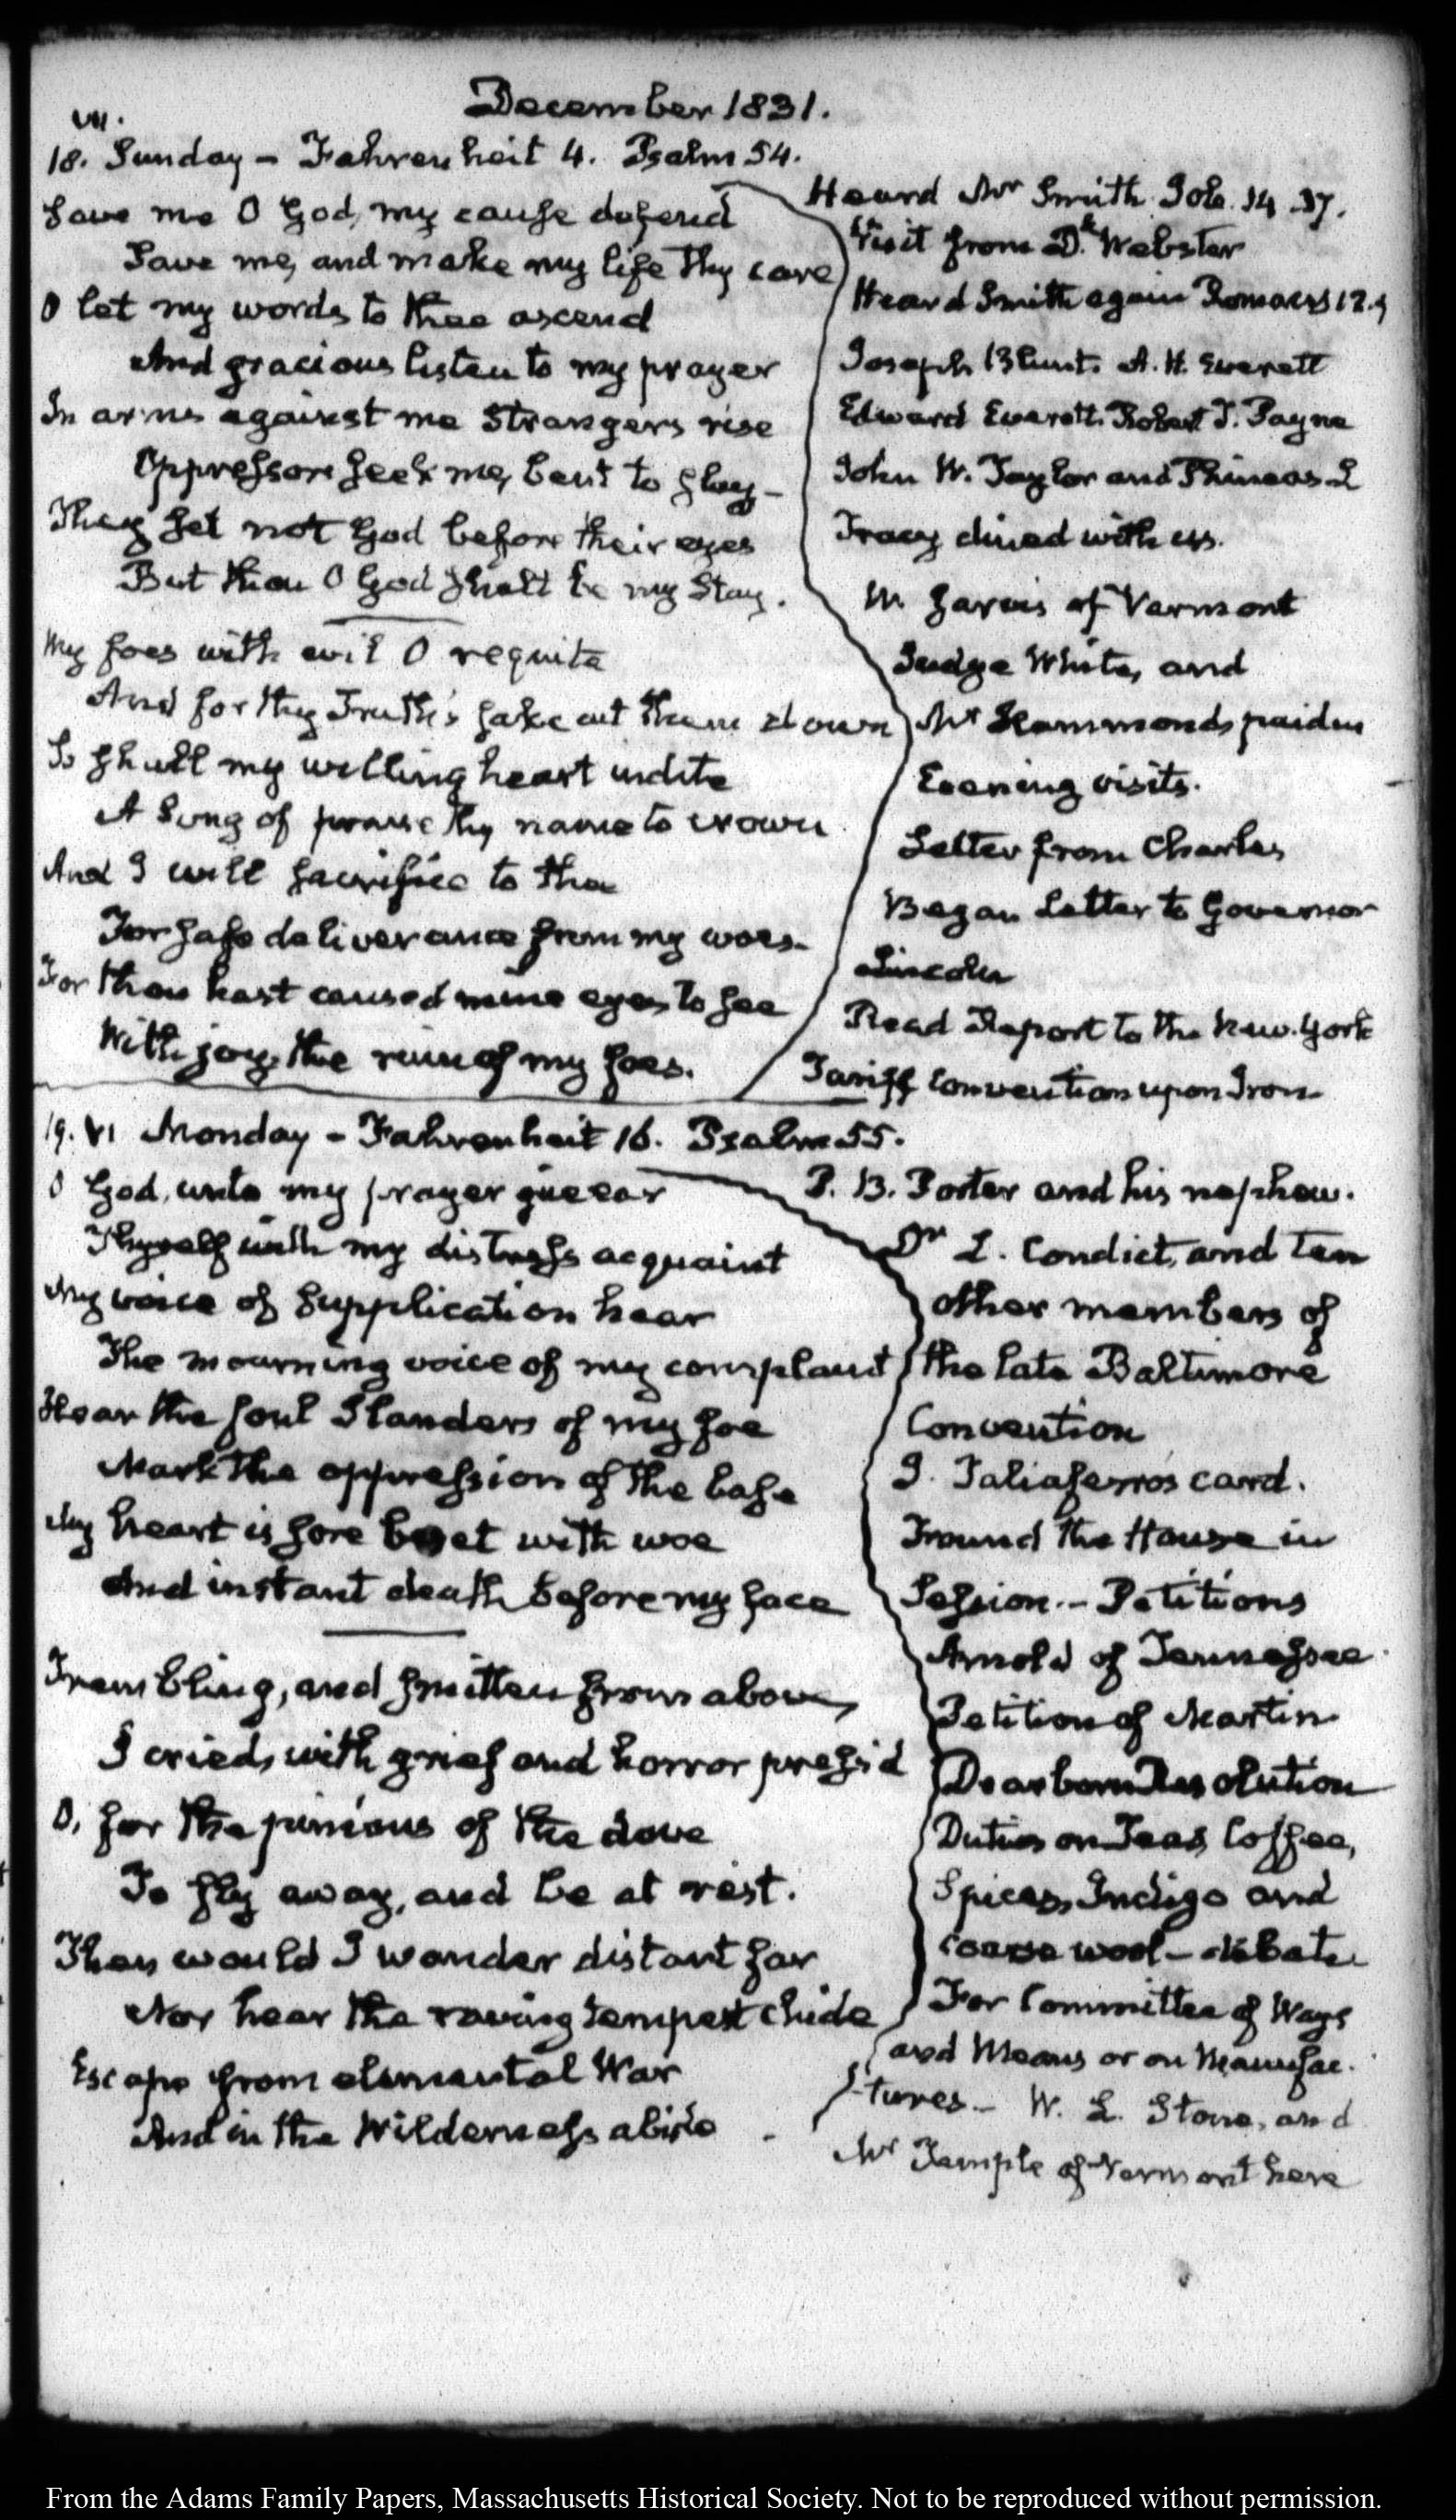 December 1831.
VII.
18. Sunday – Fahrenheit 4. Psalm 54.
Save me O God, my cause defend
Save me, and make my life thy care
O let my words to thee ascend
And gracious listen to my prayer
In arms against me Strangers rise
Oppressors seek me, bent to slay –
They set not God before their eyes
But thou O God shalt be my Stay.
My foes with evil O requite
And for thy Truth's sake cut them down
So shall my willing heart indite
A Song of praise thy name to crown
And I will sacrifice to thee
For safe deliverance from my woes.
For thou hast caused mine eyes to see
With joy, the ruin of my foes.
Heard Mr Smith Job. 14
Visit from D. Webster
Heard Smith again Romans 12.9
Joseph Blunt. A. H. Everett
Edward Everett. Robert T. Payne
John W. Taylor and Phineas L
Tracy dined with us.
W. Jarvis of Vermont
Judge White, and
Mr Hammond, paid us
Evening visits.
Letter from Charles
Began Letter to Governor
Lincoln
Read Report to the New. York
Tariff Convention upon Iron
19. VI Monday – Fahrenheit 16. Psalm 55.
O God, unto my prayer give ear
Thyself with my distress acquaint
My voice of Supplication hear
The mourning voice of my complaint
Hear the foul Slanders of my foe
Mark the oppression of the base
My heart is sore beset with woe
And instant death before my face
Trembling, and smitten from above,
I cried, with grief and horror press'd
O, for the pinions of the dove
To fly away, and be at rest.
Then would I wander distant far
Nor hear the raving tempest chide
Escape from elemental War
And in the Wilderness abide
P. B. Porter and his nephew.
Dr L. Condict, and ten
other members of
the late Baltimore
Convention
J. Taliaferro's card.
Found the House in
Session. – Petitions
Arnold of Tennessee
Petition of Martin
Dearborn Resolution
Duties on Teas, Coffee,
Spices, Indigo and
coarse wool – debate
For Committee of Ways
and Means or on Manufac-
tures – W. L. Stone, and
Mr Temple of Vermont here
From the Adams Family Papers, Massachusetts Historical Society. Not to be reproduced without permission.